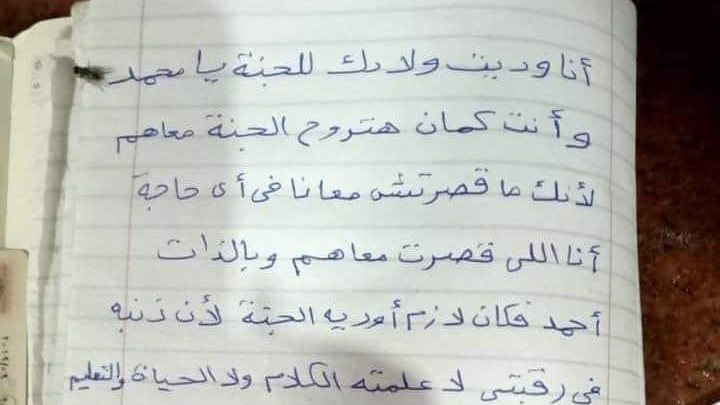 أنا وديت ولادك للجنة يا محمد
وأنت كمان هتروح الجنة معاهم
لأنك ما قصرتش معانا فى أى حاجة
أنا اللى قصرت معاهم وبالذات
أحمد فكان لازم أوريه الجنة لأن ذنبه
فى رقبتى لا علمته الكلام ولا الحياة والتعليم